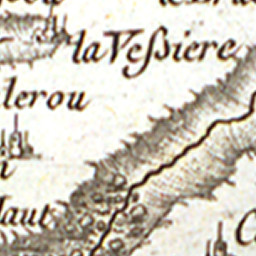 la Veſsiere
lerou
i
Haut
C